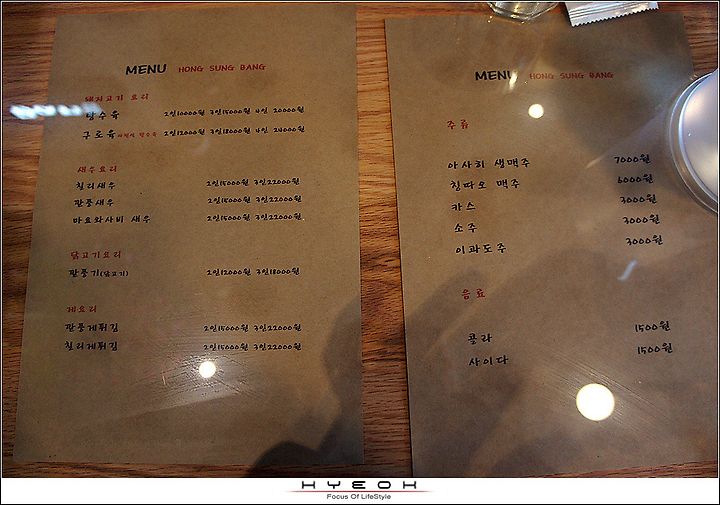 MENU HONG SUNG BANG
돼지고기 요리
탕수육 2인10000원 3인15000원 4인 20000원
구로육 2인12000원 3인18000원 4인 24000원
새우요리
칠리새우 2인15000원 3인22000원
깐풍새우 2인15000원 3인22000원
마요와사비 새우 2인15000원 3인22000원
닭고기요리
깐풍기(닭고기) 2인12000원 3인18000원
게요리
깐풍게튀김 2인15000원 3인22000원
칠리게튀김 2인15000원 3인22000원
MENU HONG SUNG BANG
주류
아사히 생맥주 7000원
칭따오 맥주 6000원
카스 3000원
소주 3000원
이과도주 3000원
음료
콜라 1500원
사이다 1500원
HYEOK
Focus Of LifeStyle